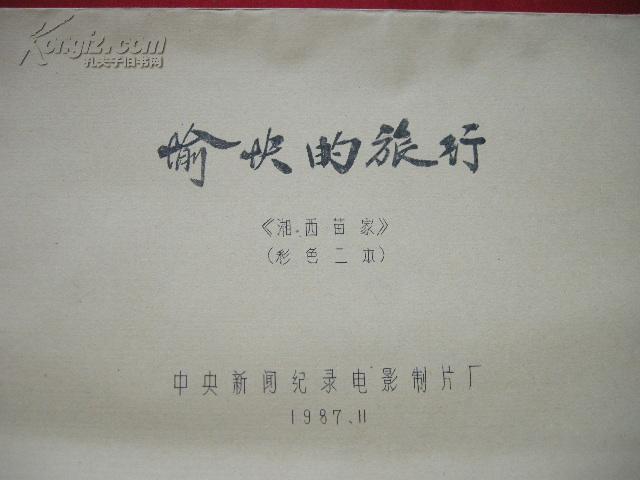 Kongfz.com
孔夫子旧书网
愉快的旅行
《湘西苗家》
(彩色二本)
中央新闻纪录电影制片厂
1987.11